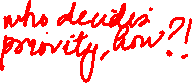 who decides
priority, how?!